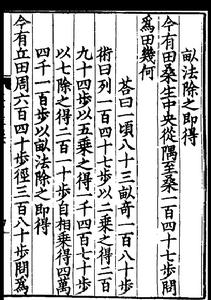 畝法除之即得
今有田桑生中央從隅至桑一百四十七步問
爲田幾何
荅曰一頃八十三畝奇一百八十步
術曰列一百四十七步以二乘之得二百
九十四步以五乘之得一千四百七十步
以七除之得二百一十步自相乘得四萬
四千一百步以畝法除之即得
今有立田周六百四十步徑三百八十步問爲